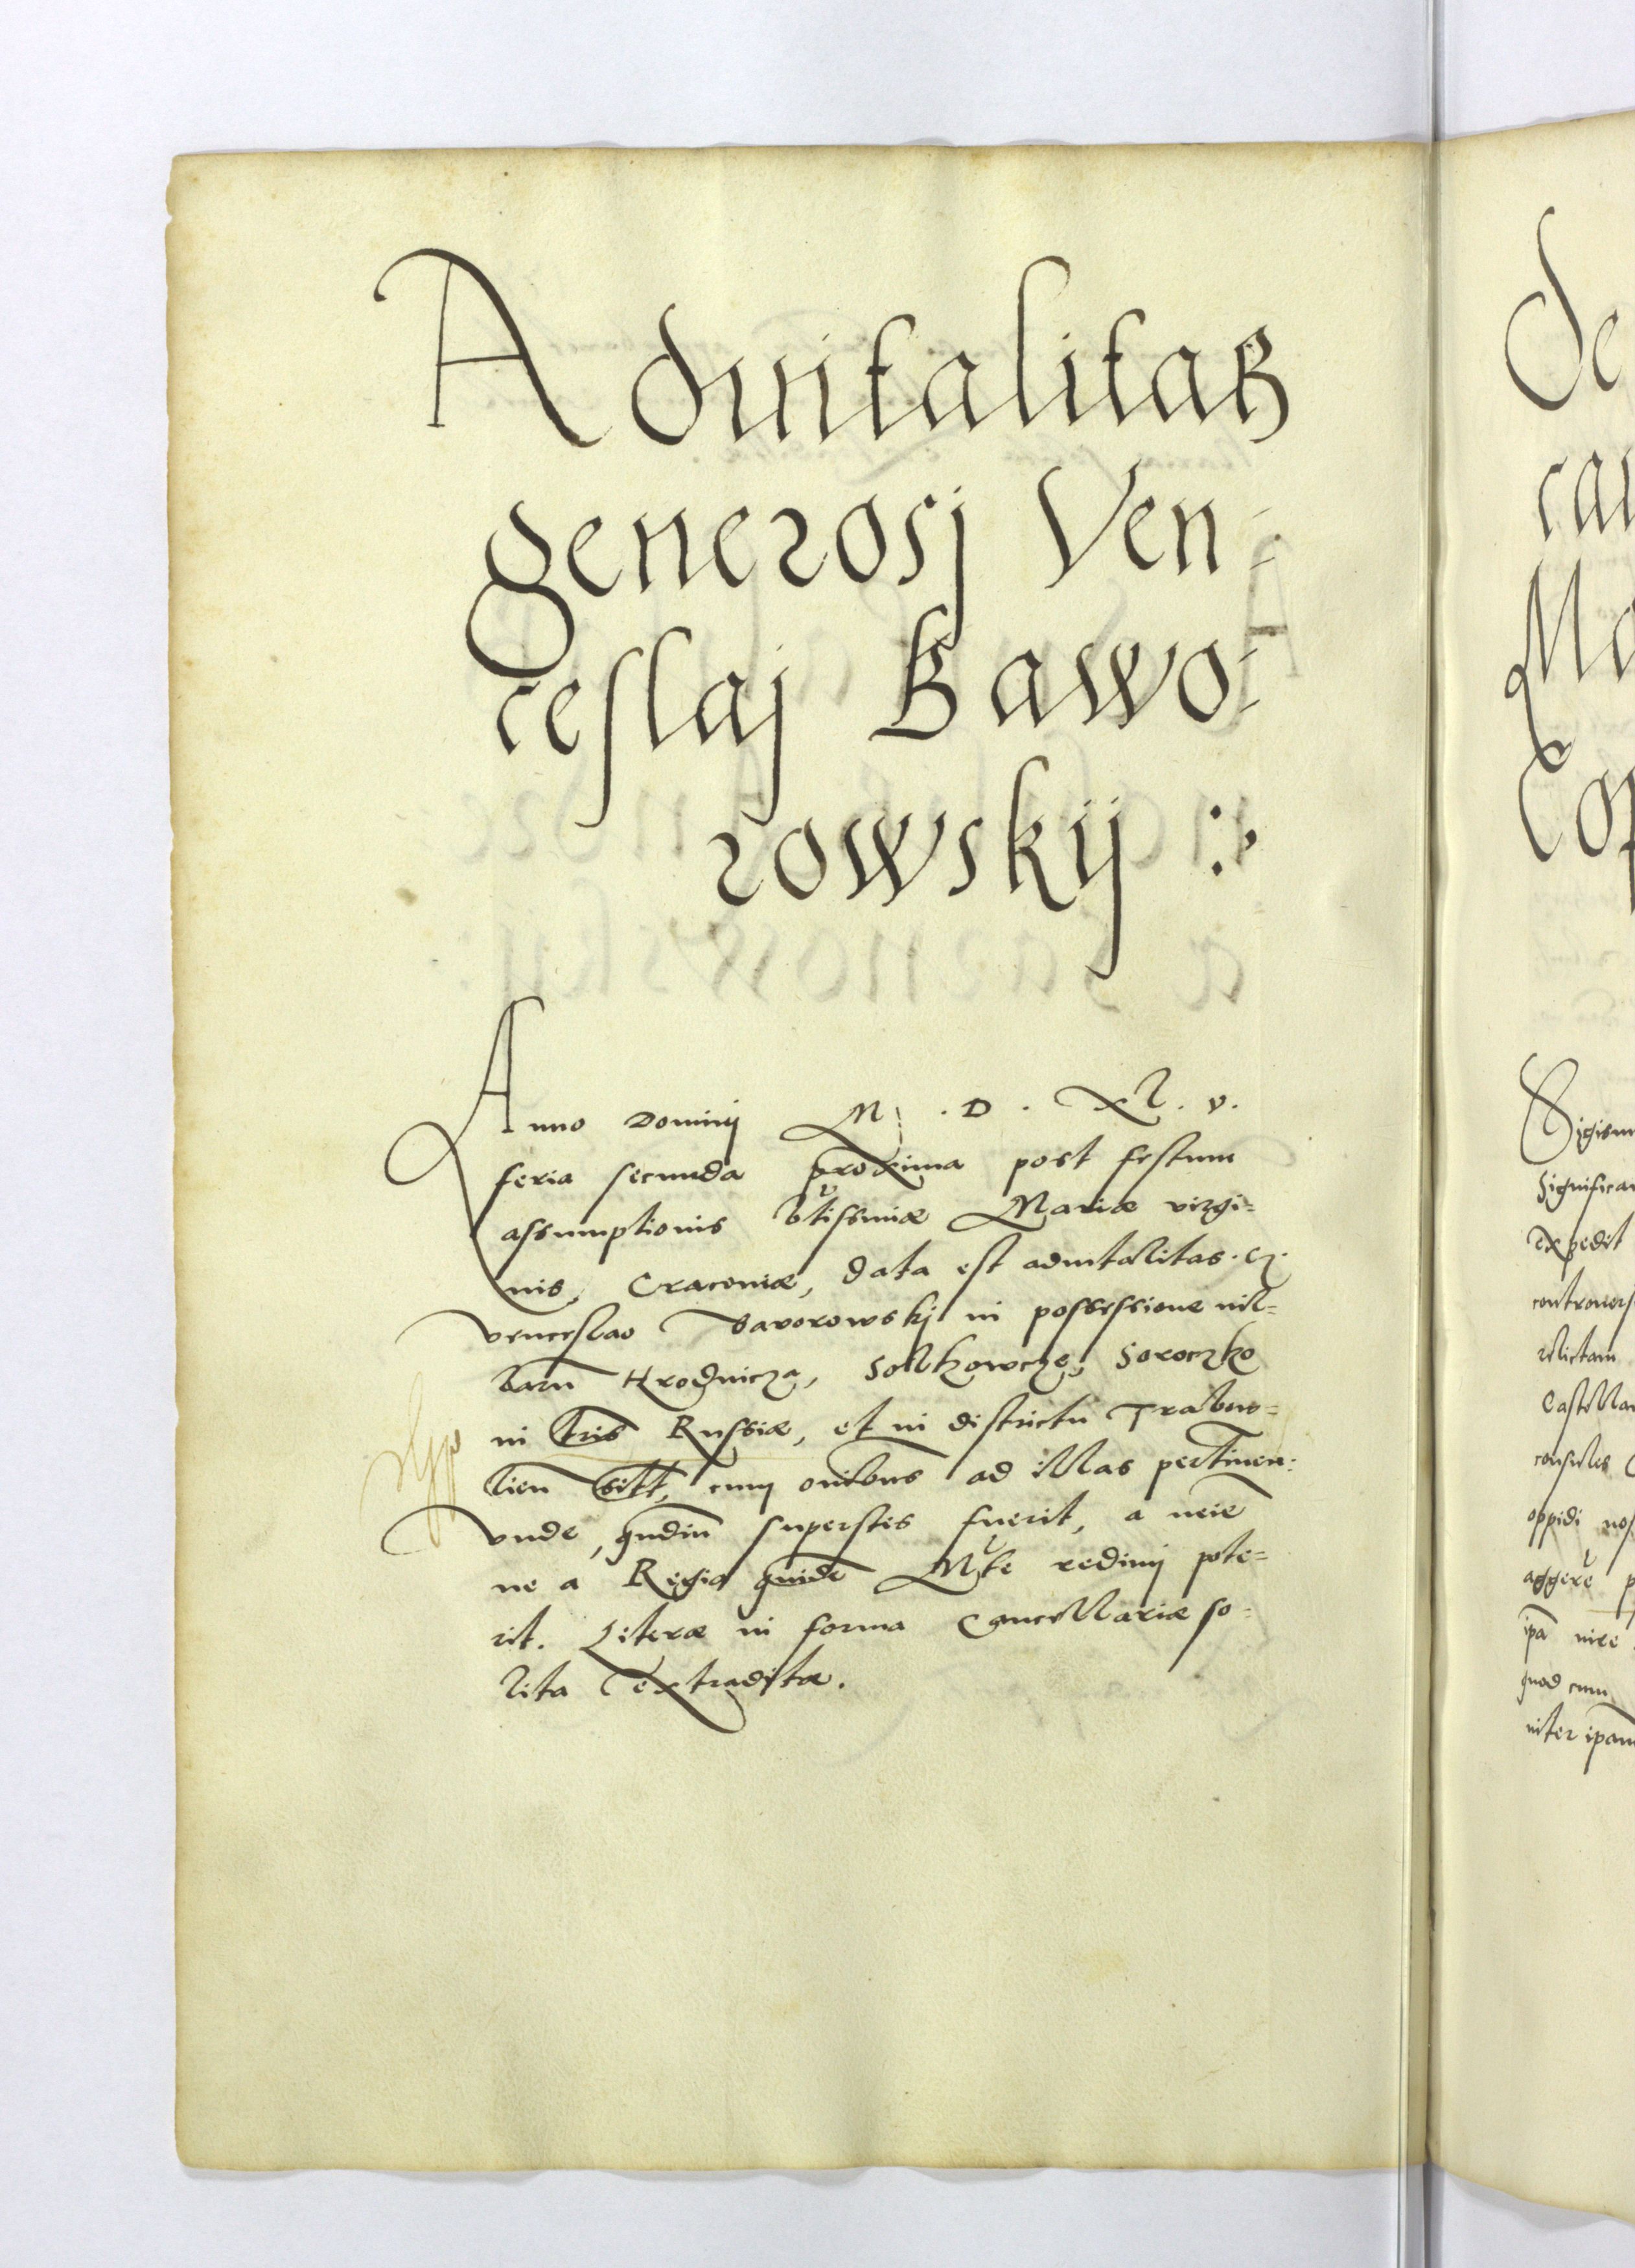 Aduitalitas
generosj Ven=
ceslaj Bawo=
rowskij
Anno Dominij M . D . XL . v .
feria secunda proxima post festum
assumptionis btissimæ Mariæ virgi=
nis, Cracoviæ, data est aduitalitas .
Venceslao Bavorowskj in possessione vil=
larū Hrodnicza, Soroczko
in tris Russiæ, et in districtu Trabow=
lien sitt, cum onibus ad illas pertinen:
Vnde, qūdiu superstes fuerit, a neīe
ne a Regia quidē Mte redimj pote=
rit. Literæ in forma Cancellariæ so=
lita extraditæ.
De
cau
Ma
Cop
Sigism
Significa
expedit
controuers
relictam
Castella
consules
oppidi nos
aggere p
ipā nire
quod cum
inter ipam